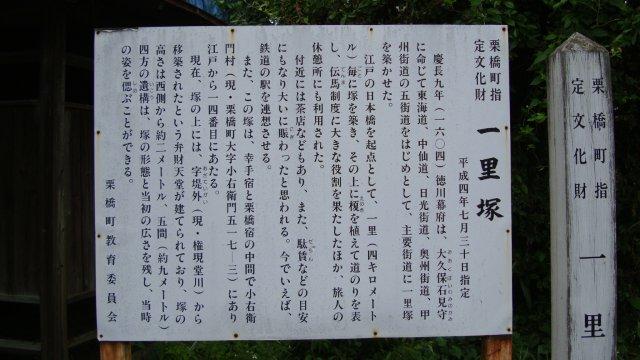 栗橋町指
定文化財
一里塚
平成四年七月三十日指定
慶長九年(一六〇四)徳川幕府は、大久保石見守
に命じて東海道、中仙道、日光街道、奥州街道、甲
州街道の五街道をはじめとして、主要街道に一里塚
を築かせた。
江戸の日本橋を起点として、一里(四キロメート
ル)毎に塚を築き、その上に榎を植えて道のりを表
し、伝馬制度に大きな役割を果たしたほか、旅人の
休憩所にも利用された。
付近には茶店などもあり、また、駄賃などの目安
にもなり大いに賑わったと思われる。今でいえば、
鉄道の駅を連想させる。
また、この塚は、幸手宿と栗橋宿の中間で小右衛
門村(現・栗橋町大字小右衛門五一七―三)にあり
江戸から一四番目にあたる。
現在、塚の上には、字堤外(現・権現堂川)から
移築されたという弁財天堂が建てられており、塚の
高さは西側から約二メートル、五間(約九メートル)
四方の遺構は、塚の形態と当初の広さを残し、当時
の姿を偲ぶことができる。
栗橋町教育委員会
栗橋町指
定文化財
一里